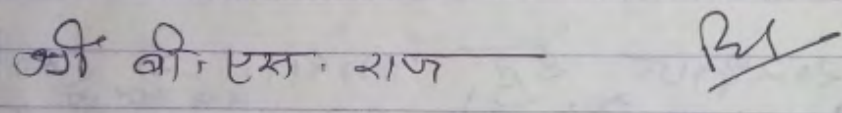 श्री बी. एस. राज